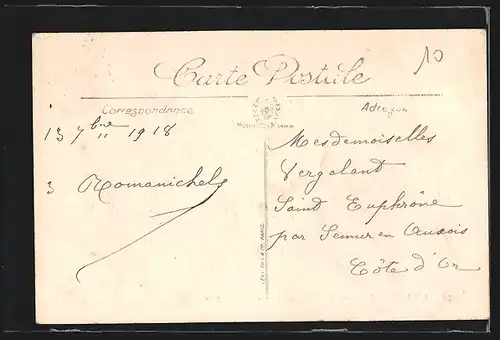 10
Carte Postale
Correspondance
Adresse
13 7bre 1918
3 Romanichels
Mesdemoiselles
Vergalant
Saint Euphrône
par Semur en Auxois
Côte d'Or